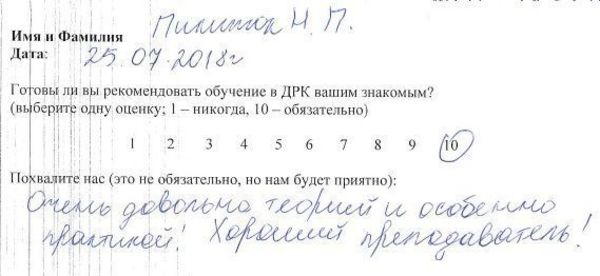 Имя и Фамилия Пикиток Н. П.
Дата: 25.07.2018г
Готовы ли вы рекомендовать обучение в ДРК вашим знакомым?
(выберите одну оценку; 1 – никогда, 10 – обязательно)
1 2 3 4 5 6 7 8 9 10
Похвалите нас (это не обязательно, но нам будет приятно):
Очень довольна теорией и особенно
практикой! Хороший преподаватель!